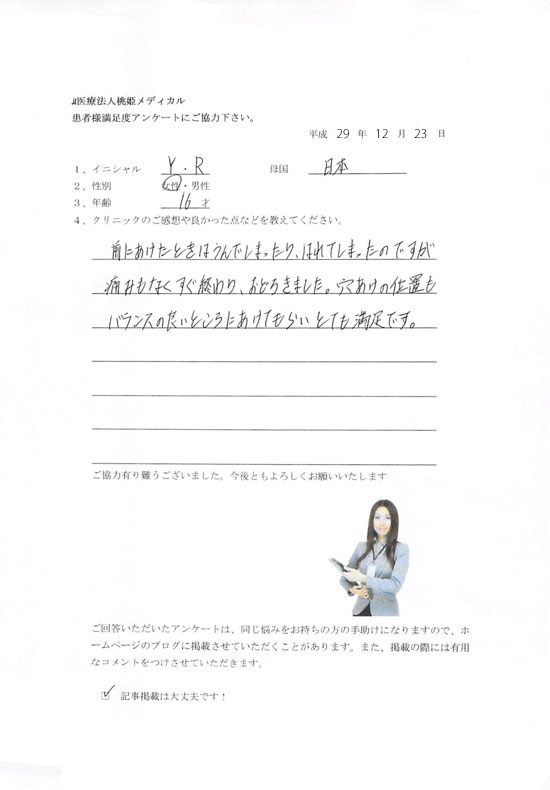 医療法人桃姫メディカル
患者様満足度アンケートにご協力下さい。
平成 29 年 12 月 23 日
1、イニシャル Y.R 母国 日本
2、性別 女性・男性
3、年齢 16 才
4、クリニックのご感想や良かった点などを教えてください。
前にあけたときはうんでしまったり、はれてしまったのですが
痛みもなくすぐ終わり、おどろきました。穴あけの位置も
バランスの良いところにあけてもらいとても満足です。
ご協力有り難うございました。今後ともよろしくお願いいたします
ご回答いただいたアンケートは、同じ悩みをお持ちの方の手助けになりますので、ホ
ームページのブログに掲載させていただくことがあります。また、掲載の際には有用
なコメントをつけさせていただきます。
☑ 記事掲載は大丈夫です！